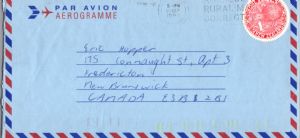 PAR AVION
AEROGRAMME
RURAL M
CORRECT
Eric Hopper
175 Connaught St, Apt 3
Fredericton
New Brunswick
CANADA E3B 2B1